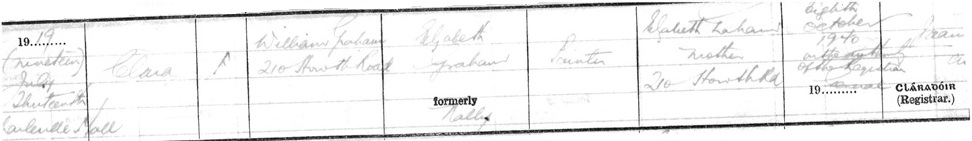 1919
(nineteen)
July
Thirteenth
Hall
Clara
F
William Graham
210 Howth Road
Elizabeth
Graham
formerly
Nally
Printer
Elizabeth Graham
mother
210 Howth Rd
Eighth
October
1940
on the authority
of the Registrar
19.........
CLÁRADÓIR
(Registrar.)